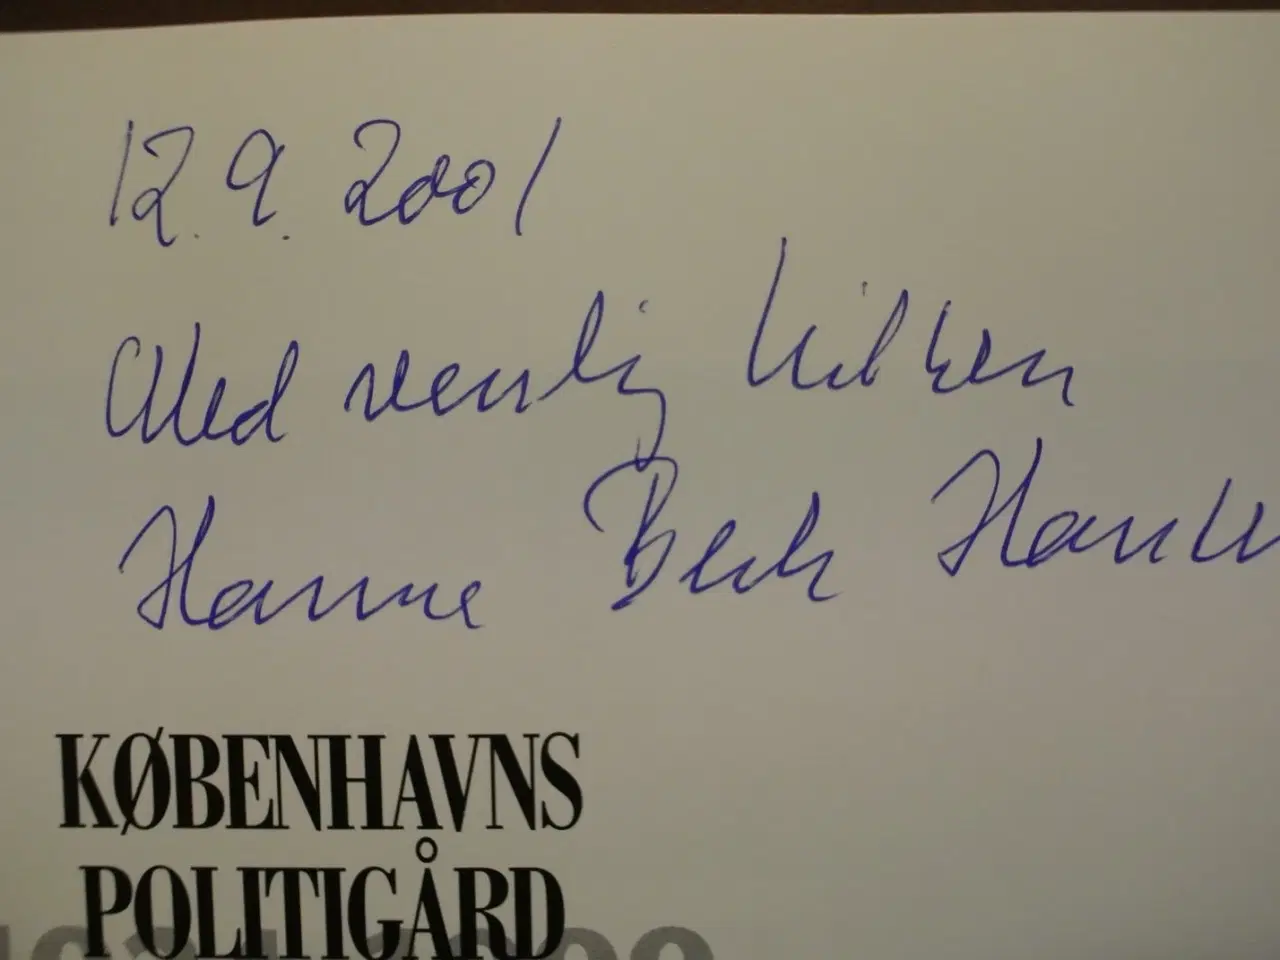 12.9.2001
Med venlig hilsen
Hanne Bech
KØBENHAVNS
POLITIGÅRD